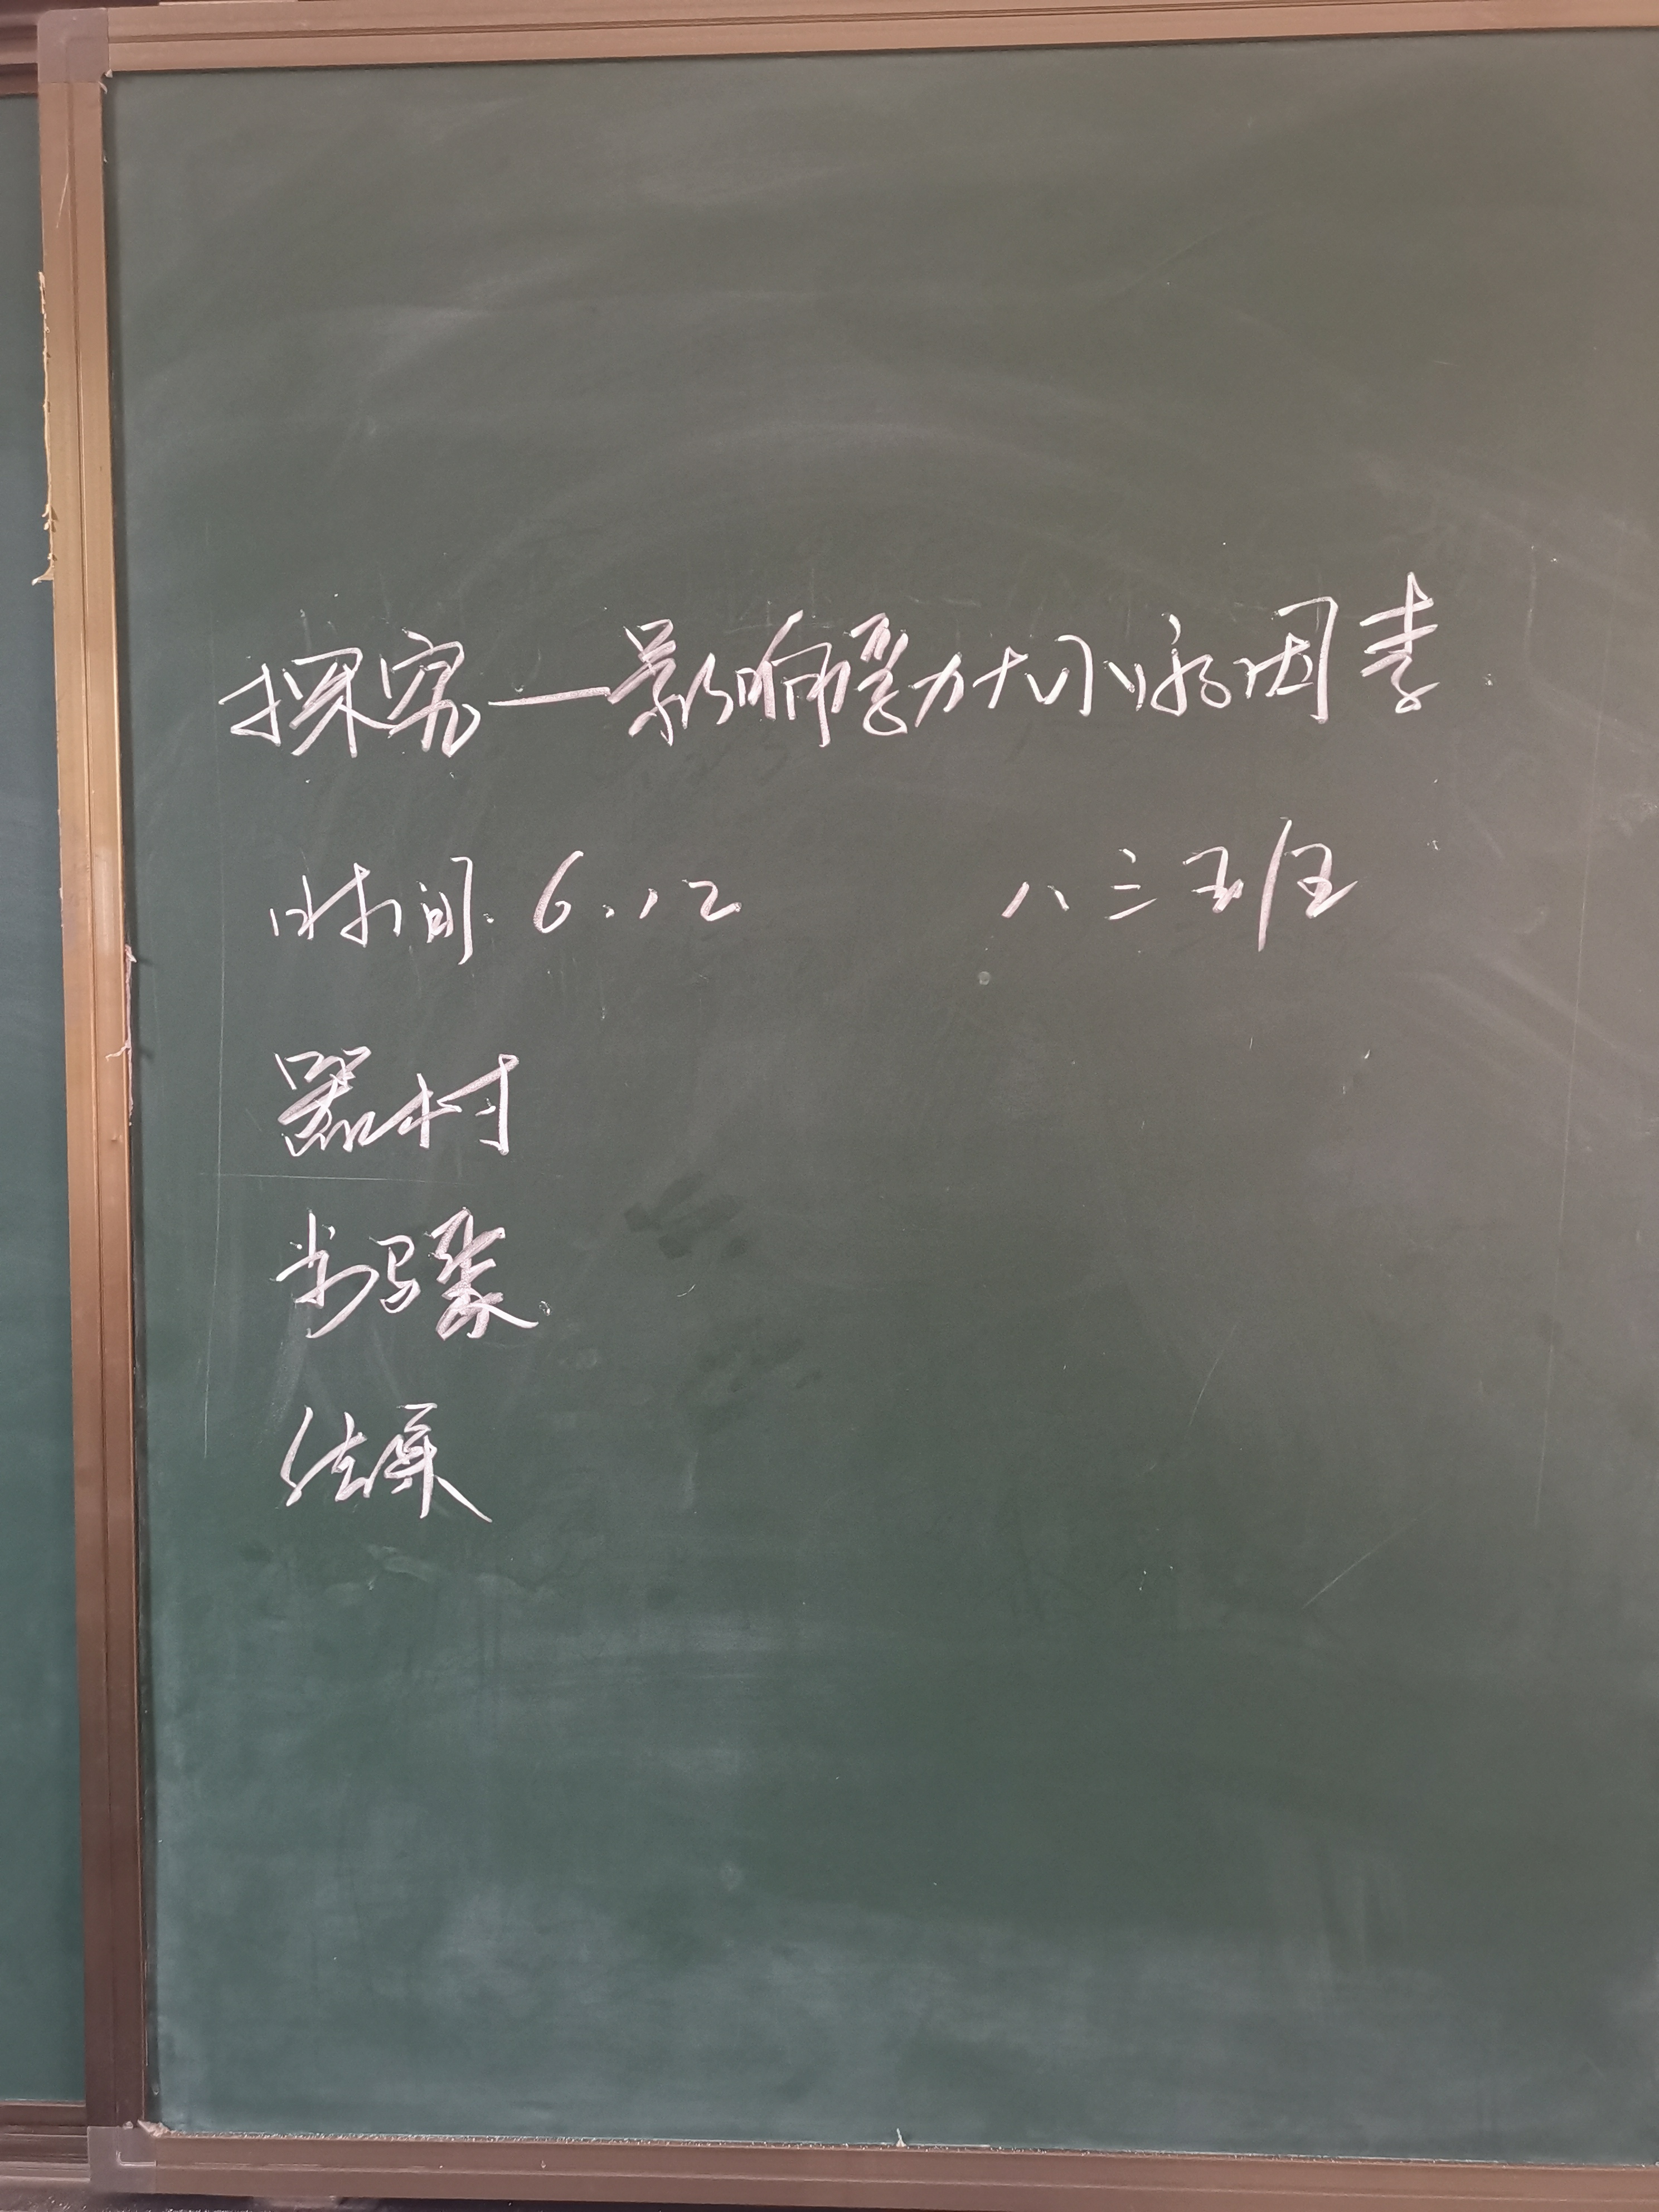 探究—影响浮力大小的因素
时间.6.12 八三班
器材
步骤
结果